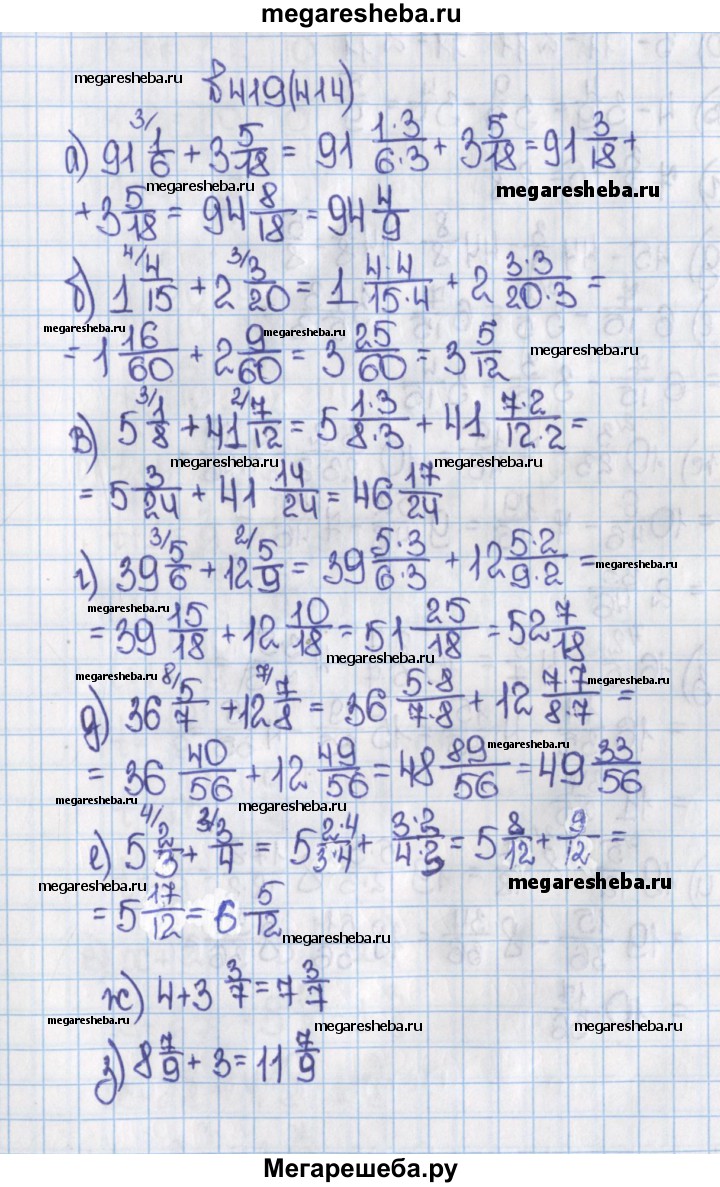 megaresheba.ru
megaresheba.ru
в 419(414)
а) 91 ³/ 1/6 + 3 5/18 = 91 1·3/6·3 + 3 5/18 = 91 3/18 +
megaresheba.ru
megaresheba.ru
+ 3 5/18 = 94 8/18 = 94 4/9
б) 1 ⁴/ 4/15 + 2 ³/ 3/20 = 1 4·4/15·4 + 2 3·3/20·3 =
megaresheba.ru megaresheba.ru
= 1 16/60 + 2 9/60 = 3 25/60 = 3 5/12
megaresheba.ru
в) 5 ³/ 1/8 + 41 ²/ 7/12 = 5 1·3/8·3 + 41 7·2/12·2 =
megaresheba.ru megaresheba.ru
= 5 3/24 + 41 14/24 = 46 17/24
г) 39 ³/ 5/6 + 12 ²/ 5/9 = 39 5·3/6·3 + 12 5·2/9·2 =
megaresheba.ru
megaresheba.ru
= 39 15/18 + 12 10/18 = 51 25/18 = 52 7/18
megaresheba.ru
megaresheba.ru megaresheba.ru
д) 36 ⁸/ 5/7 + 12 ⁷/ 7/8 = 36 5·8/7·8 + 12 7·7/8·7 =
megaresheba.ru
= 36 40/56 + 12 49/56 = 48 89/56 = 49 33/56
megaresheba.ru megaresheba.ru
е) 5 ⁴/ 2/3 + ³/ 3/4 = 5 2·4/3·4 + 3·3/4·3 = 5 8/12 + 9/12 =
megaresheba.ru megaresheba.ru
= 5 17/12 = 6 5/12
megaresheba.ru
ж) 4 + 3 3/7 = 7 3/7
megaresheba.ru megaresheba.ru megaresheba.ru
з) 8 7/9 + 3 = 11 7/9
Мегарешеба.ру